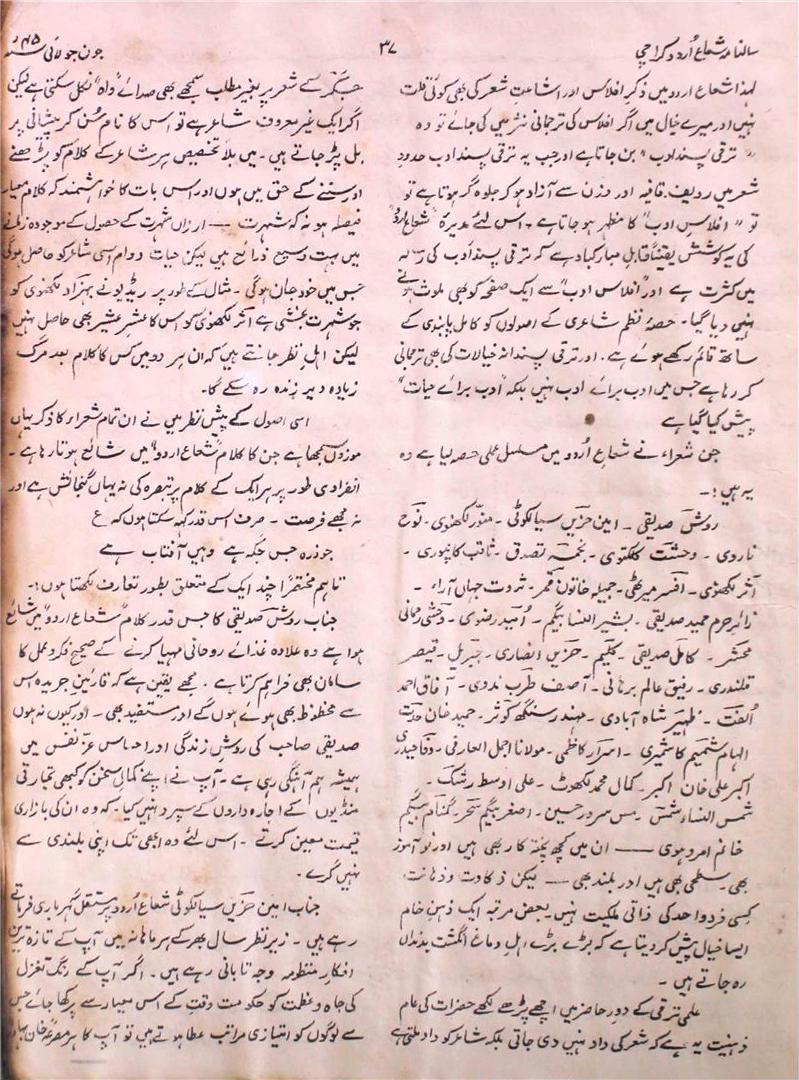 سالنامہ شعاع اُردو کراچی
۳۷
جون جولائی ۴۵ء
لہذا شعاع اردو میں ذکرِ افلاس اور اشاعتِ شعر کی بھی کوئی قلت
نہیں اور میرے خیال میں اگر افلاس کی ترجمانی نثر میں کی جائے تو وہ
"ترقی پسند ادب" بن جاتا ہے اور جب یہ ترقی پسند ادب حدودِ
شعر میں ردیف، قافیہ اور وزن سے آزاد ہو کر جلوہ گر ہوتا ہے تو
تو "افلاسِ ادب" کا مظہر ہو جاتا ہے۔ اس لئے مدیرہ "شعاع اردو"
کی یہ کوشش یقیناً قابلِ مبارکباد ہے کہ ترقی پسند ادب کی رسالہ
میں کثرت ہے اور "افلاسِ ادب" سے ایک صفحہ کو بھی ملوث ہونے
نہیں دیا گیا۔ حصۂ نظم شاعری کے اصولوں کو کامل پابندی کے
ساتھ قائم رکھے ہوئے ہے۔ اور ترقی پسندانہ خیالات کی بھی ترجمانی
کر رہا ہے جس میں ادب برائے ادب نہیں بلکہ "ادب برائے حیات"
پیش کیا گیا ہے
جن شعراء نے شعاع اُردو میں مسلسل عملی حصہ لیا ہے وہ
یہ ہیں:۔
روش صدیقی۔ امین حزیں سیالکوٹی۔ منور لکھنوی۔ نوح
ناروی۔ وحشت کلکتوی۔ نجمہ تصدق۔ ثاقب کانپوری۔
آثر لکھنوی۔ افسر میرٹھی۔ جمیلہ خاتون قمر۔ ثروت جہاں آراء۔
زائر حرم حمید صدیقی۔ بشیر النسا بیگم۔ اُمید رضوی۔ وحشی رحمانی
محشر۔ کامل صدیقی۔ کلیم۔ حزیں انصاری۔ جبریل۔ قیصر
قلندری۔ رفیق عالم برہانی۔ آصف طرب ندوی۔ آفاق احمد
اُلفت۔ ظہیر شاہ آبادی۔ مہندر سنگھ کوثر۔ حمید خان
الہام شمیم کاشمیری۔ اسرار کاظمی۔ مولانا اجمل العارفی۔ وفا حیدری
اکبر علی خان اکبر۔ کمال محمد لکھوٹ۔ علی اوسط رشک۔
شمس النساء شمس۔ مس سرور حسین۔ اصغر بیگم سحر۔ گمنام بیگم
خانم امروہوی —— ان میں کچھ پختہ کار بھی ہیں اور نو آموز
بھی۔ سطحی بھی ہیں اور بلند بھی — لیکن ذکاوت و ذہانت
کسی فردِ واحد کی ذاتی ملکیت نہیں۔ بعض مرتبہ ایک ذہنِ خام
ایسا خیال پیش کر دیتا ہے کہ بڑے بڑے اہلِ دماغ انگشت بدنداں
رہ جاتے ہیں۔
علمی ترقی کے دورِ حاضر میں اچھے پڑھے لکھے حضرات کی عام
ذہنیت یہ ہے کہ شعر کی داد نہیں دی جاتی بلکہ شاعر کو داد ملتی ہے
جگر کے شعر پر بغیر مطلب سمجھے بھی صدائے "واہ" نکل سکتی ہے لیکن
اگر ایک غیر معروف شاعر ہے تو اس کا نام سُن کر پیشانی پر
بل پڑ جاتے ہیں۔ میں بلا تخصیص ہر شاعر کے کلام کو پڑھنے
اور سننے کے حق میں ہوں اور اس بات کا خواہشمند کہ کلام معیار
فیصلہ ہو نہ کہ شہرت — ارزاں شہرت کے حصول کے موجودہ زمانے
میں بہت وسیع ذرائع ہیں لیکن حیاتِ دوام اسی شاعر کو حاصل ہوگی
جس میں خود جان ہوگی۔ مثال کے طور پر ریڈیو نے بہزاد لکھنوی کو
جو شہرت بخشی ہے آثر لکھنوی کو اس کا عشرِ عشیر بھی حاصل نہیں
لیکن اہلِ نظر جانتے ہیں کہ ان ہر دو میں کس کا کلام بعد مرگ
زیادہ دیر زندہ رہ سکے گا۔
اسی اصول کے پیشِ نظر میں نے ان تمام شعراء کا ذکر یہاں
موزوں سمجھا ہے جن کا کلام "شعاع اردو" میں شائع ہوتا رہا ہے۔
انفرادی طور پر ہر ایک کے کلام پر تبصرہ کی نہ یہاں گنجائش ہے اور
نہ مجھے فرصت۔ صرف اس قدر کہہ سکتا ہوں کہ ع
جو ذرہ جس جگہ ہے وہیں آفتاب ہے
تاہم مختصراً چند ایک کے متعلق بطور تعارف لکھتا ہوں:۔
جناب روش صدیقی کا جس قدر کلام "شعاع اردو" میں شائع
ہوا ہے وہ علاوہ غذائے روحانی مہیا کرنے کے صحیح فکر و عمل کا
سامان بھی فراہم کرتا ہے۔ مجھے یقین ہے کہ قارئینِ جریدہ اس
سے محظوظ بھی ہوئے ہوں گے اور مستفید بھی۔ اور کیوں نہ ہوں
صدیقی صاحب کی روشِ زندگی اور احساسِ عزتِ نفس میں
ہمیشہ ہم آہنگی رہی ہے۔ آپ نے اپنے کمالِ سخن کو کبھی تجارتی
منڈیوں کے اجارہ داروں کے سپرد نہیں کیا کہ وہ ان کی بازاری
قیمت معین کرتے۔ اس لئے وہ ابھی تک اپنی بلندی سے
نہیں گرے۔
جناب امین حزیں سیالکوٹی شعاع اُردو پر مستقل گہرباری فرماتے
رہے ہیں۔ زیرِ نظر سال بھر کے ہر ماہنامہ میں آپ کے تازہ ترین
افکارِ منظومہ وجہ تابانی رہے ہیں۔ اگر آپ کے رنگِ تغزل
کی جاہ و عظمت کو حکومتِ وقت کے اس معیار سے پرکھا جائے جس
سے لوگوں کو امتیازی مراتب عطا ہوتے ہیں تو آپ کا ہر مصرعہ خان بہادر